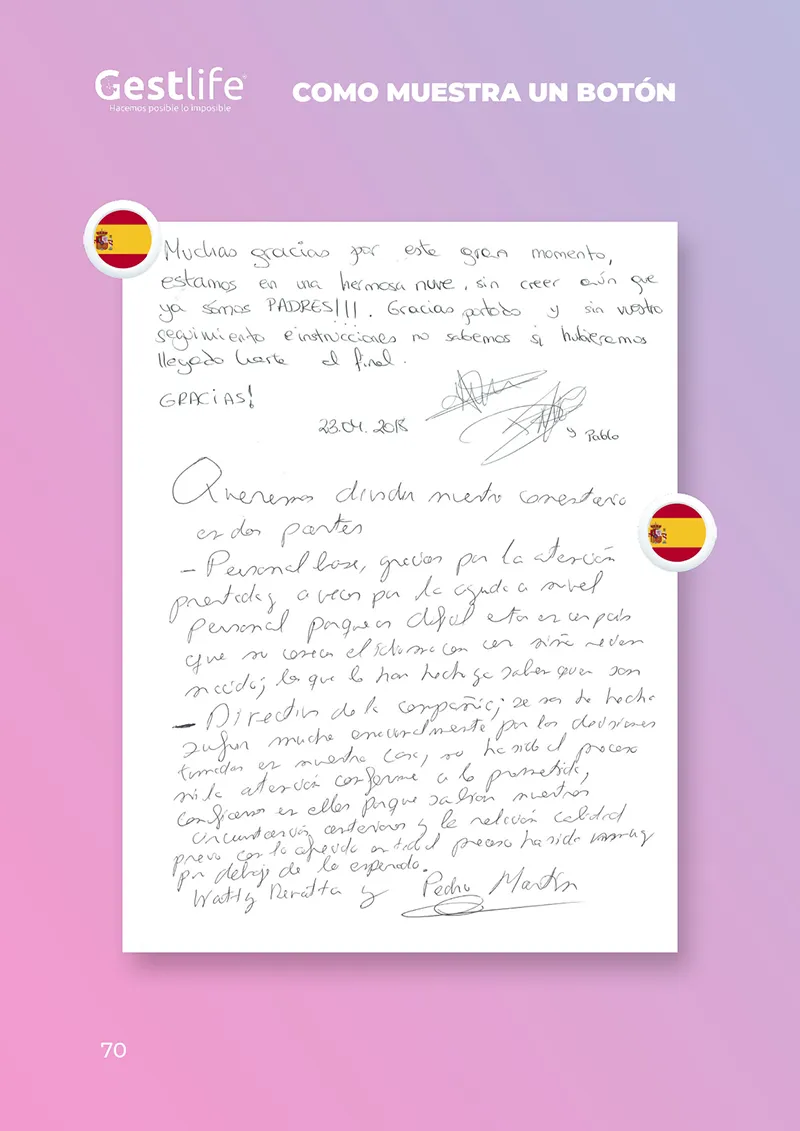 Gestlife
Hacemos posible lo imposible
COMO MUESTRA UN BOTÓN
Muchas gracias por este gran momento,
estamos en una hermosa nuve, sin creer aún que
ya sómos PADRES!!!. Gracias por todo y sin vuestro
seguimiento e instrucciones no sabemos si hubieramos
llegado hasta el final.
GRACIAS!
23.04.2018
y Pablo
Queremos dividir nuestro comentario
en dos partes
- Personal base, gracias por la atención
prestada y a veces por la ayuda a nivel
personal porque es dificil estar en un pais
que no conoces el idioma con un niño recien
nacido; lo que lo han hecho ya saben quien son
- Directiva de la compañia; se nos ha hecho
sufrir mucho emocionalmente por las decisiones
tomadas en nuestro caso, no ha sido el proceso
ni la atención conforme a lo prometido,
confiamos en ellos porque sabian nuestras
circunstancias anteriores y la relación calidad
precio con lo ofrecido en el proceso ha sido muy
por debajo de lo esperado.
y Pedro Martin
70